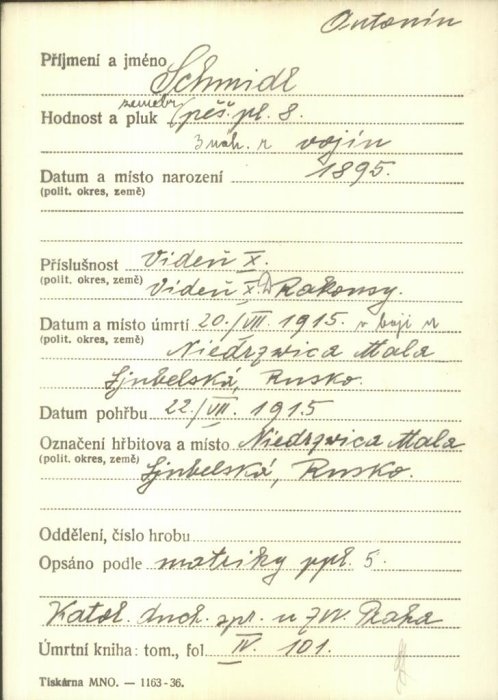 Antonín
Příjmení a jméno Schmidl
Hodnost a pluk zeměbr. pěš. pl. 8.
3 náh. r vojín
Datum a místo narození 1895.
(polit. okres, země)
Příslušnost Vídeň X.
(polit. okres, země) Vídeň X. D. Rakousy.
Datum a místo úmrtí 20./VII. 1915. v boji u
(polit. okres, země) Niedrzwica Mala
Ljubelská, Rusko.
Datum pohřbu 22./VII. 1915
Označení hřbitova a místo Niedrzwica Mala
(polit. okres, země) Ljubelská, Rusko.
Oddělení, číslo hrobu
Opsáno podle matriky ppl. 5.
Katol. duch. spr. u ZVV. Praha
Úmrtní kniha: tom., fol. IV. 101.
Tiskárna MNO. — 1163-36.